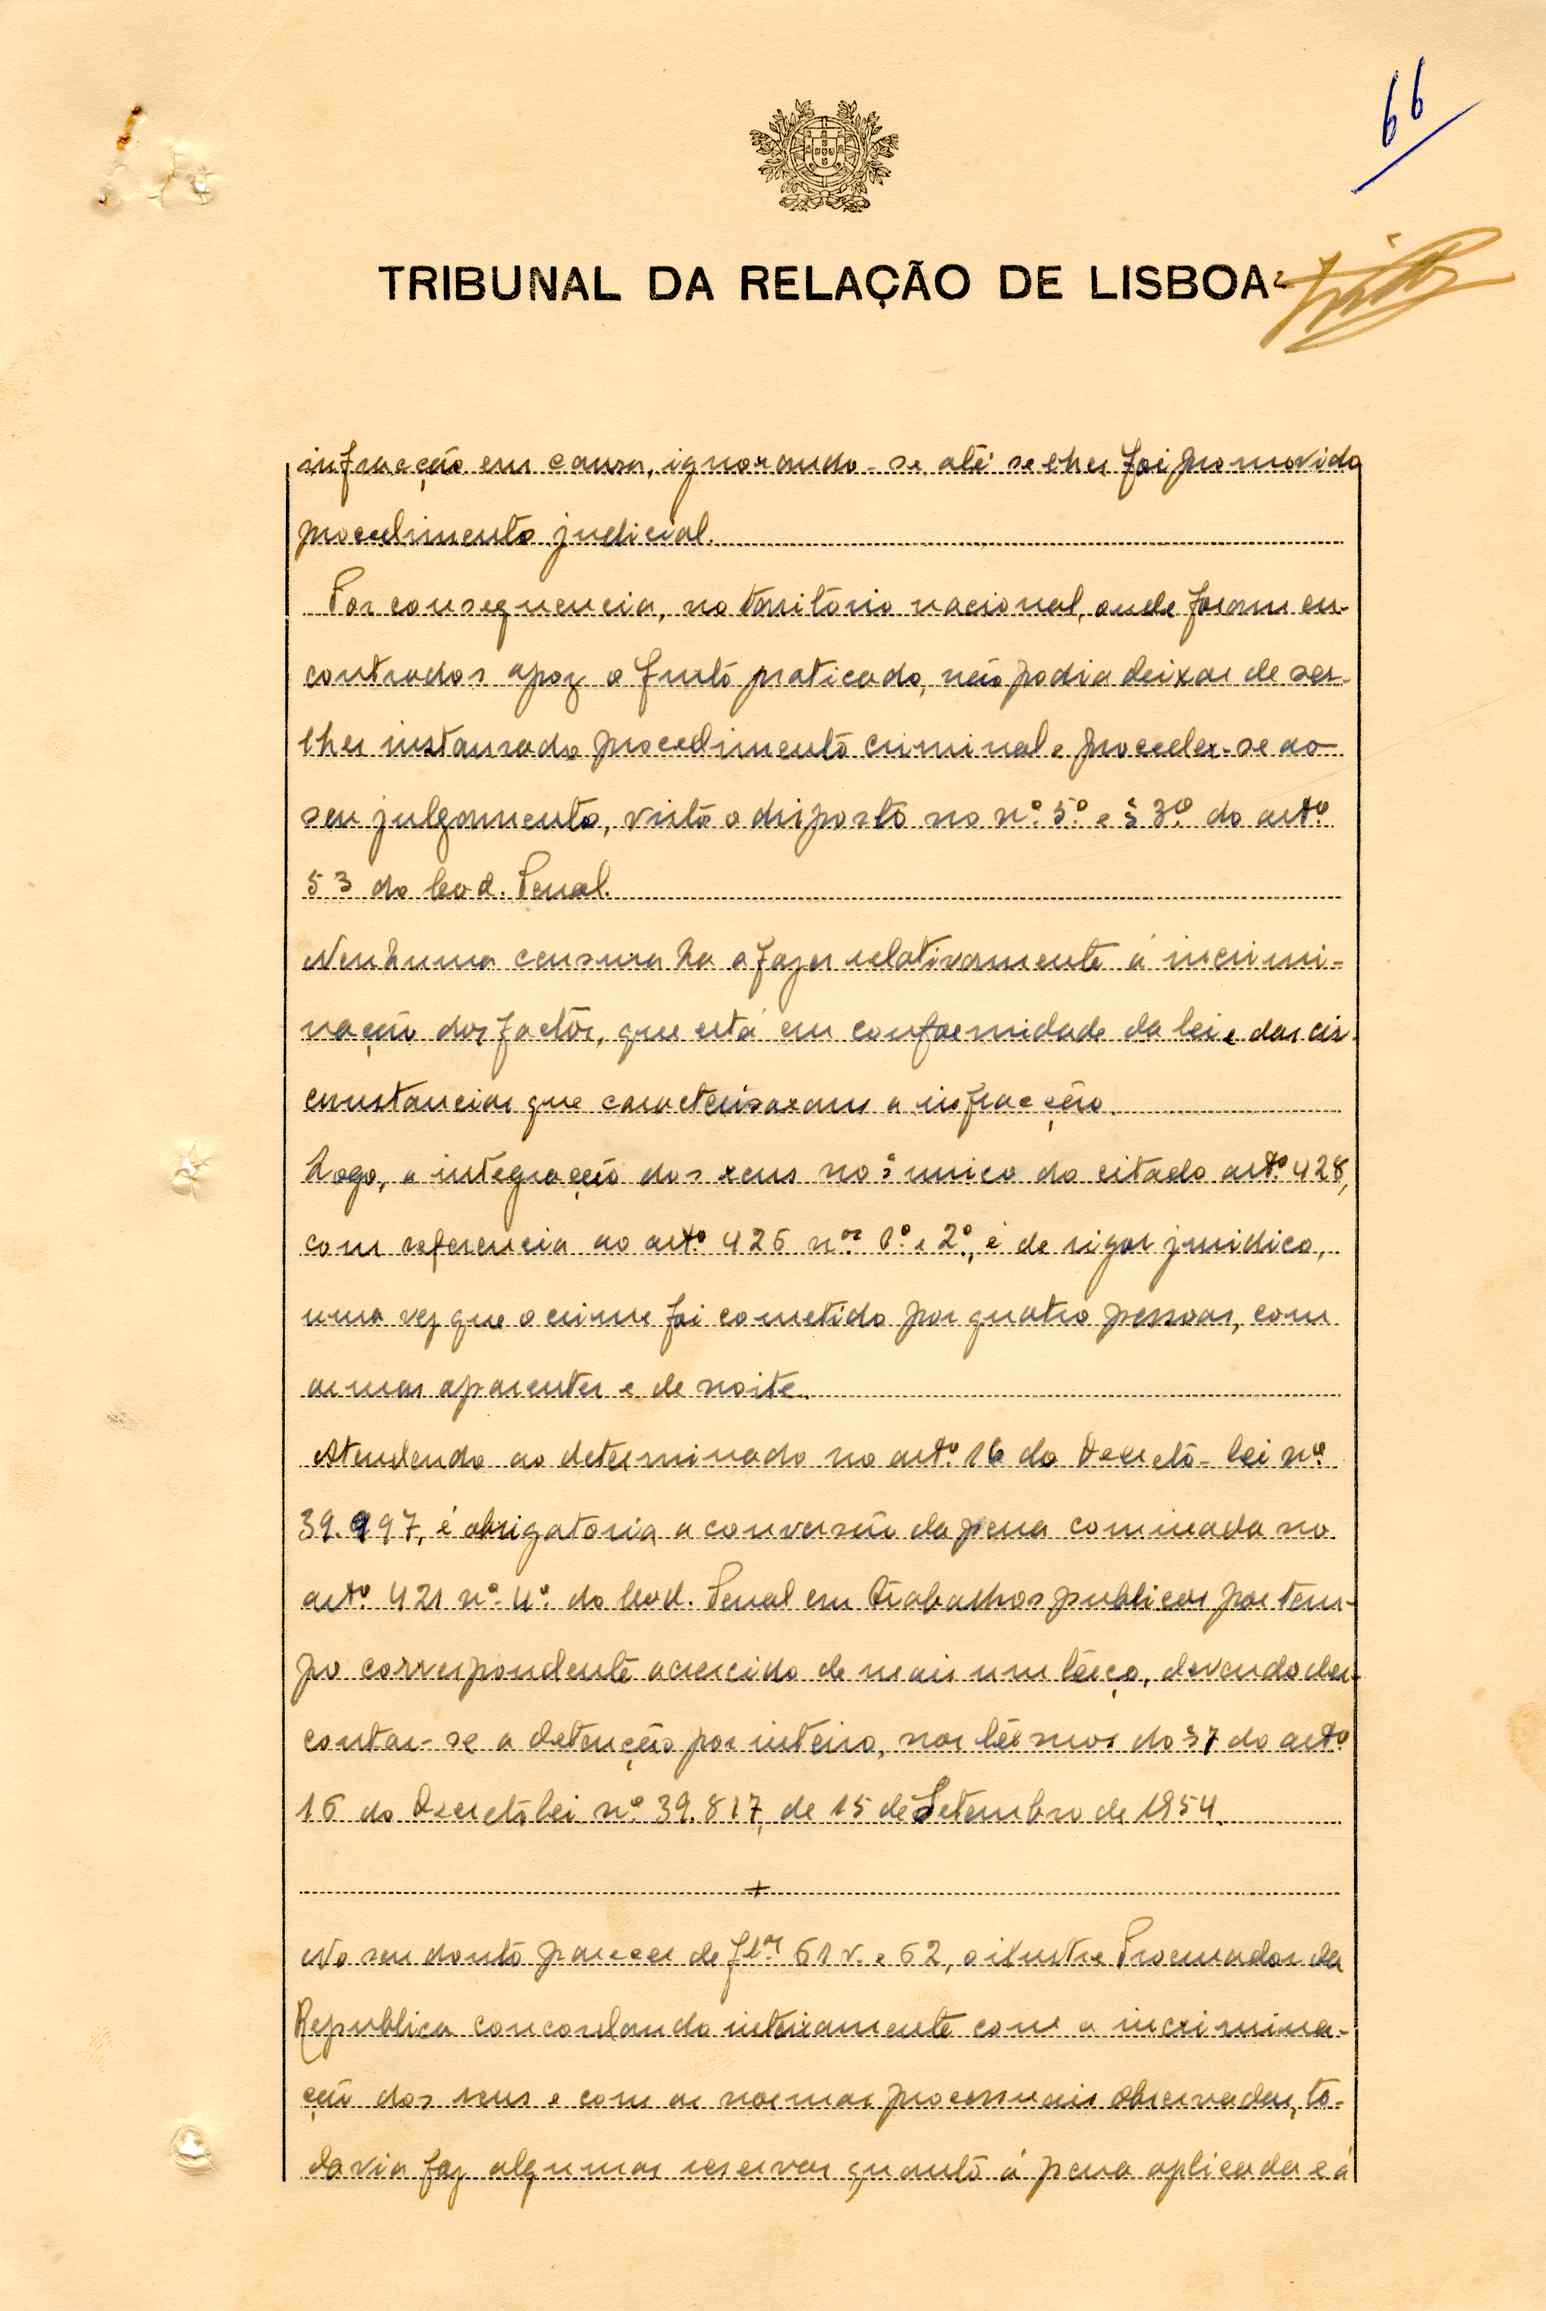 66
TRIBUNAL DA RELAÇÃO DE LISBOA
infracção em causa, ignorando-se até se lhes foi promovido
procedimento judicial.
Por consequencia, no território nacional, onde foram en-
contrados apoz o furto praticado, não podia deixar de ser-
lhes instaurado procedimento criminal e proceder-se ao
seu julgamento, visto o disposto no nº. 5º e § 3º do artº
53 do Cod. Penal.
Nenhuma censura ha a fazer relativamente á incrimi-
nação dos factos, que está em conformidade da lei e das cir-
cunstancias que caracterisaram a infracção.
Logo, a integração dos reus no § unico do citado artº 428,
com referencia ao artº 426 nos 1º e 2º, é de rigor juridico,
uma vez que o crime foi cometido por quatro pessoas, com
armas aparentes e de noite.
Atendendo ao determinado no artº 16 do Decreto-lei nº
39.997, é obrigatoria a conversão da pena cominada no
artº 421 nº 4º do Cod. Penal em trabalhos publicos por tem-
po correspondente acrescido de mais um têrço, devendo des-
contar-se a detenção por inteiro, nos têrmos do § 7 do artº
16 do Decreto lei nº 39.817, de 15 de Setembro de 1954.
+
No seu douto parecer de fls. 61 v. e 62, o ilustre Procurador da
Republica concordando inteiramente com a incrimina-
ção dos reus e com as normas processuais observadas, to-
davia faz algumas reservas quanto á pena aplicada e á